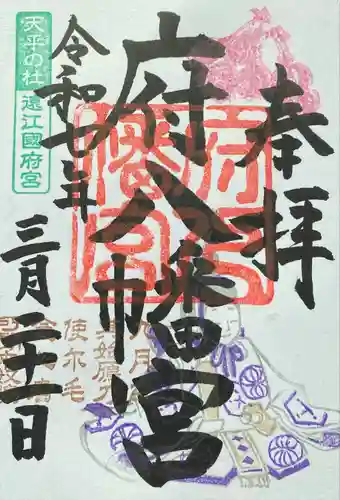 奉拝
府八幡宮
令和七年
三月二十一日
天平の杜
遠江國府宮
府八幡宮